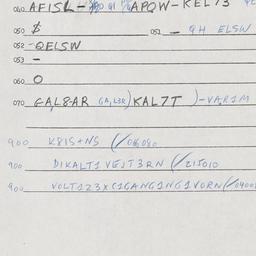 040 AFISL- APQW-KEL73
050 $ 051 - 9H ELSW
052 -QELSW
053 -
060 O
070 GAL8AR GA,L3R) KAL7T )-VAR1M
900 K8IS+NS (/06080
900 DIKALT1 VEJT3RN (/215010
900 VOLT123XC1GANG1NG1VORN(/0400